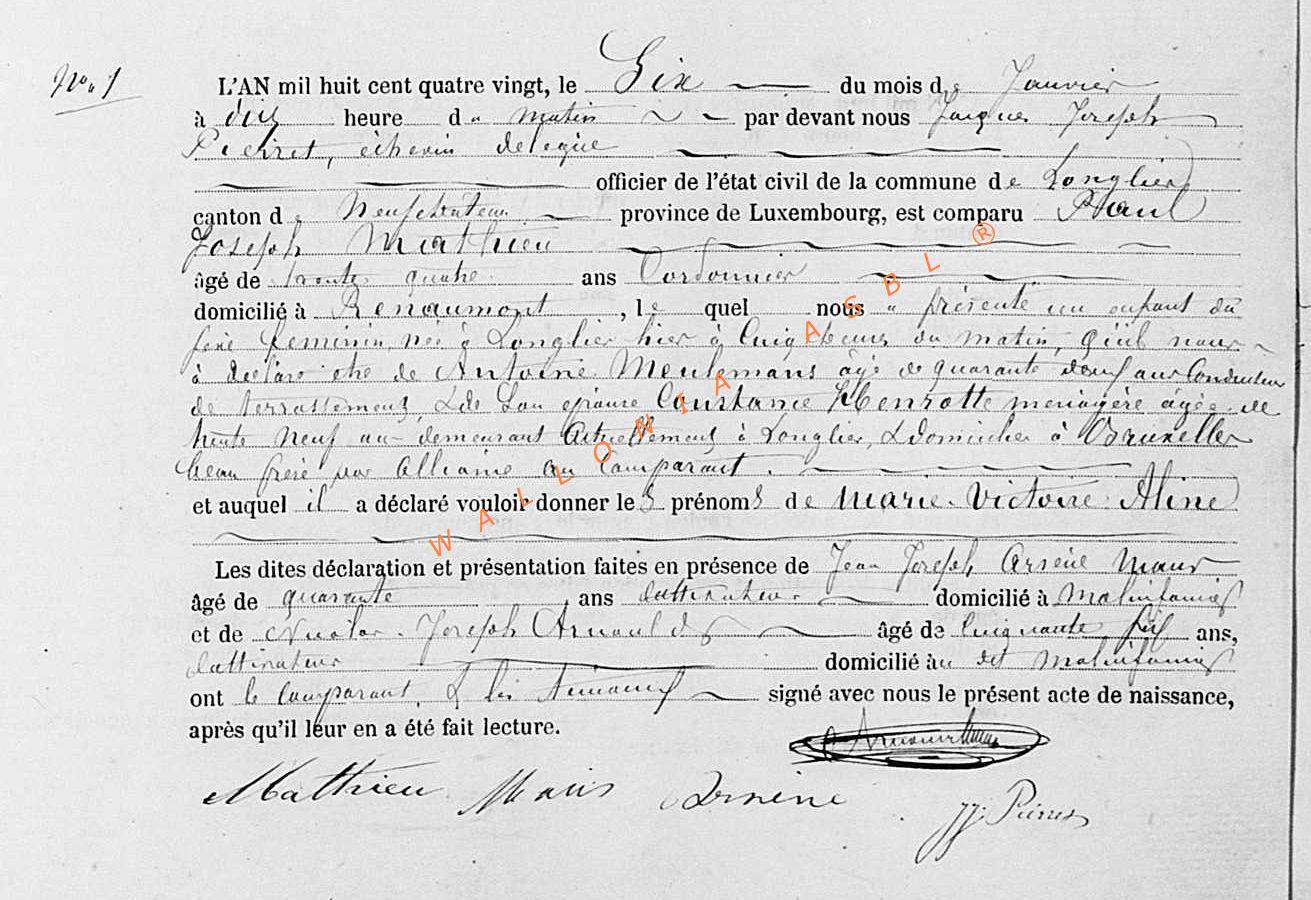 No. 1
L'AN mil huit cent quatre vingt, le Six du mois de Janvier
à dix heure du matin par devant nous Jacques Joseph
Pierret, échevin délégué
officier de l'état civil de la commune de Longlier
canton de Neufchateau province de Luxembourg, est comparu Paul
Joseph Mathieu
âgé de trente quatre ans Cordonnier
domicilié à Renaumont, le quel nous a présenté un enfant du
sexe féminin, née à Longlier hier à cinq heures du matin, qu'il nous
à déclaré être de Antoine Meulemans âgé de quarante deux ans Conducteur
de terrassements, & de Son épouse Constance Henrotte ménagère agée de
trente neuf ans demeurant Actuellement à Longlier, & domiciliés à Bruxelles
beau frère par alliance au Comparant.
et auquel il a déclaré vouloir donner les prénoms de Marie Victoire Aline
Les dites déclaration et présentation faites en présence de Jean Joseph Arsène Maus
âgé de quarante ans cultivateur domicilié à Malinfaing
et de Joseph Arnould âgé de Cinquante ans,
cultivateur domicilié au dit Malinfaing
ont le Comparant & les témoins signé avec nous le présent acte de naissance,
après qu'il leur en a été fait lecture.
Mathieu Maus Arsène JJ. Pierret
WALLONIA ASBL ®